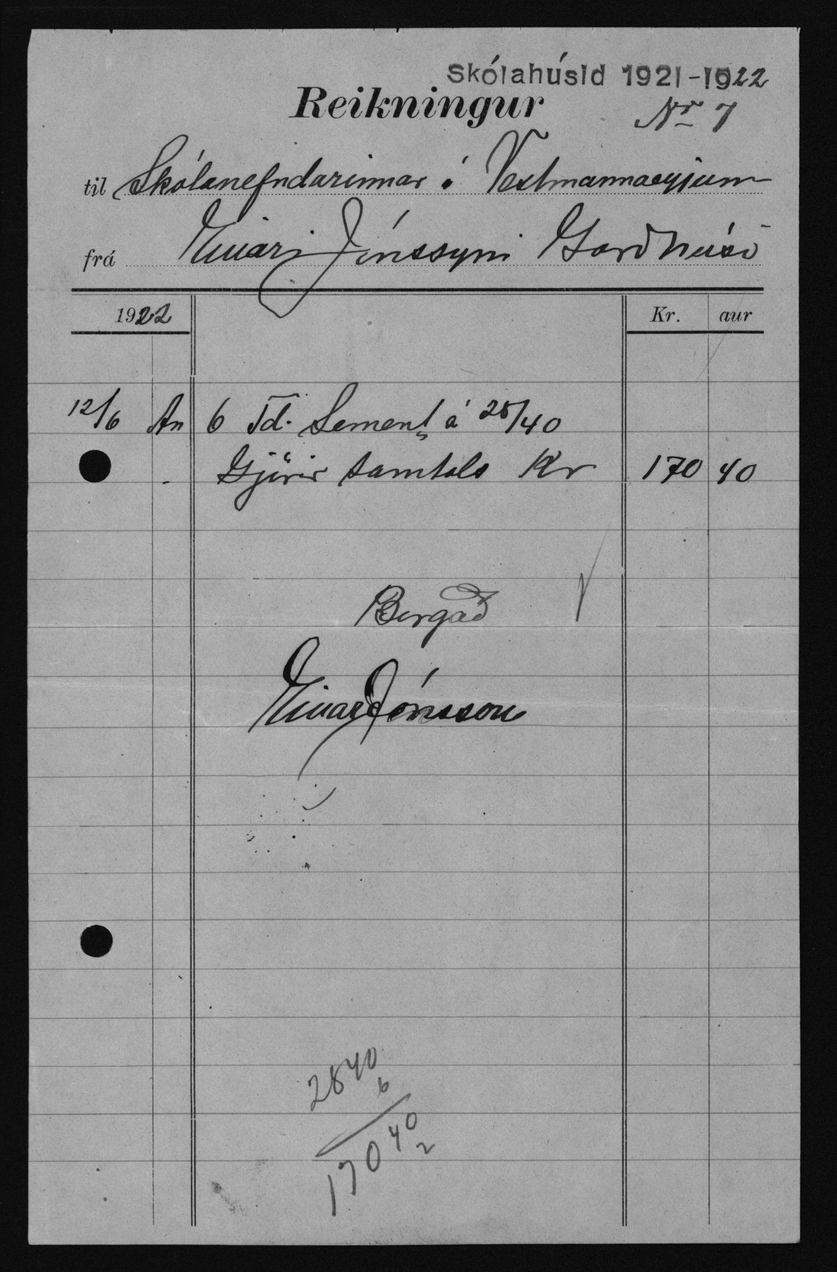 Skólahúsid 1921-1922
Reikningur
Nr 7
til Skólanefndarinnar í Vestmannaeyjum
frá Einari Jónssyni Gardhúsi
1922 Kr. aur
12/6 An 6 Td. Sement á 28/40
- Gjörir samtals Kr 170 40
Borgað
Einar Jónsson
28 40
6
170 40
2